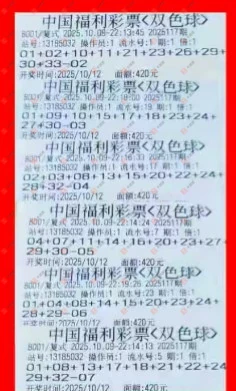 中国福利彩票<双色球>
8001/复式 2025.10.09-22:13:45 2025117期
站号:13185032 操作员:1 流水号:1 期:1 倍:1
01+02+10+11+21+23+26+29+
30+33-02
开奖时间:2025/10/12 面额:420元
中国福利彩票<双色球>
2025117期
站号:13185032 操作员:1 流水号:19 期:1 倍:1
01+09+10+15+17+18+20+23+
27+30-01
开奖时间:2025/10/12 面额:420元
中国福利彩票<双色球>
8001/复式 2025.10.09-22:16:33 2025117期
站号:13185032 操作员:1 流水号:17 期:1 倍:1
02+03+08+13+15+20+22+24+
28+32-04
开奖时间:2025/10/12 面额:420元
中国福利彩票<双色球>
8001/复式 2025.10.09-22:14:24 2025117期
站号:13185032 操作员:1 流水号: 期:1 倍:1
04+07+11+14+16+20+23+27+
29+30-05
开奖时间:2025/10/12 面额:420元
中国福利彩票<双色球>
8001/复式 2025.10.09-22:19:26 2025117期
站号:13185032 操作员:1 流水号:23 期:1 倍:1
01+04+08+14+15+20+23+24+
28+29-06
开奖时间:2025/10/12 面额:420元
中国福利彩票<双色球>
8001/复式 2025.10.09-22:14:13 2025117期
站号:13185032 操作员:1 流水号:5 期:1 倍:1
01+08+13+17+18+21+22+24+
29+32-07
开奖时间:2025/10/12 面额:420元